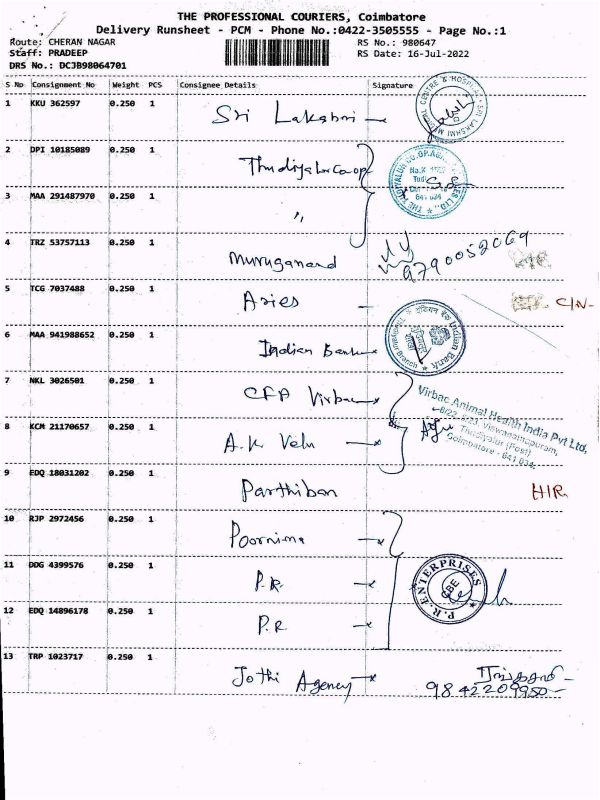 THE PROFESSIONAL COURIERS, Coimbatore
Delivery Runsheet - PCM - Phone No.:0422-3505555 - Page No.:1
Route: CHERAN NAGAR RS No.: 980647
Staff: PRADEEP RS Date: 16-Jul-2022
DRS No.: DCJB98064701
S No Consignment No Weight PCS Consignee Details Signature
1 KKU 362597 0.250 1 Sri Lakshmi
MEDICAL CENTRE & HOSPITAL * SRI LAKSHMI
2 DPI 10185089 0.250 1 Thudiyalur Co-op
THE THUDIYALUR CO.OP.
3 MAA 291487970 0.250 1 "
4 TRZ 53757113 0.250 1 Muruganand 9790052069
5 TCG 7037488 0.250 1 Aries C/N-
6 MAA 941988652 0.250 1 Indian Bank
Indian Bank
Branch
7 NKL 3026501 0.250 1 CFA Virbac
Virbac Animal Health India Pvt Ltd,
Viswanathapuram,
Thudiyalur (Post)
Coimbatore - 641 034.
8 KCM 21170657 0.250 1 A.K Velu
9 EDQ 18031202 0.250 1 Parthiban H/R
10 RJP 2972456 0.250 1 Poornima
11 DDG 4399576 0.250 1 P.R
P.R. ENTERPRISES
CBE
12 EDQ 14896178 0.250 1 P.R
13 TRP 1023717 0.250 1 Jothi Agency
9842209950